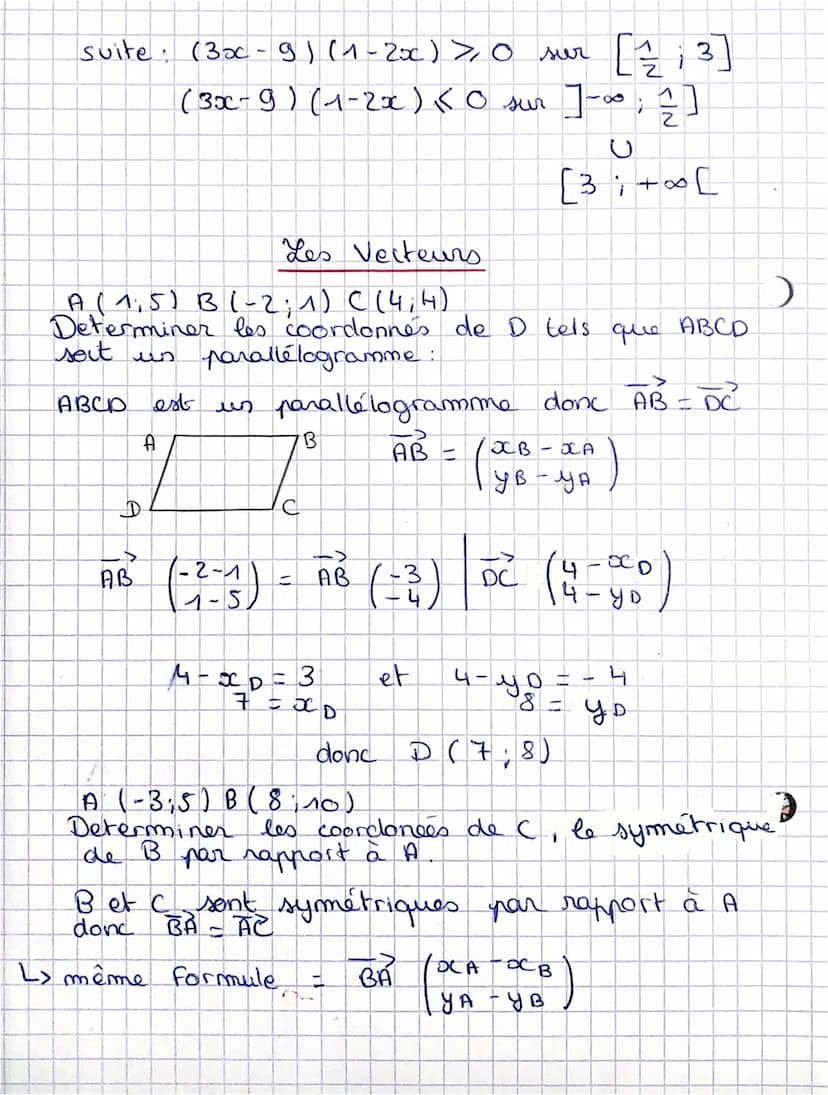 suite : (3x - 9) (1 - 2x) ⩾ 0 sur [1/2 ; 3]
(3x - 9) (1 - 2x) ⩽ 0 sur ]-∞ ; 1/2]
∪
[3 ; +∞[
Les Vecteurs
A (1;5) B (-2;1) C (4;4)
Determiner les coordonnés de D tels que ABCD
soit un parallélogramme :
ABCD est un parallélogramme donc AB⃗ = DC⃗
A B AB⃗ = (xB - xA
yB - yA)
D C
AB⃗ (-2-1
1-5) = AB⃗ (-3
-4) | DC⃗ (4 - xD
4 - yD)
4 - xD = 3 et 4 - yD = -4
7 = xD 8 = yD
donc D (7 ; 8)
A (-3;5) B (8;10)
Determiner les coordonées de C, le symétrique
de B par rapport à A.
B et C sont symétriques par rapport à A
donc BA⃗ = AC⃗
↳ même formule = BA⃗ (xA - xB
yA - yB)